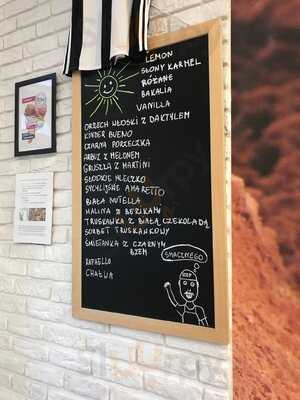 LEMON
SŁONY KARMEL
RÓŻANE
BAKALIA
VANILLA
ORZECH WŁOSKI Z DAKTYLEM
KINDER BUENO
CZARNA PORZECZKA
ARBUZ Z MELONEM
GRUSZKA Z MARTINI
SŁODKIE MLECZKO
SYCYLIJSKIE AMARETTO
BIAŁA NUTELLA
MALINA Z BEZIKAMI
TRUSKAWKA Z BIAŁĄ CZEKOLADĄ
SORBET TRUSKAWKOWY
ŚMIETANKA Z CZARNYM
BZEM
RAFAELLO
CHAŁWA
SMACZNEGO